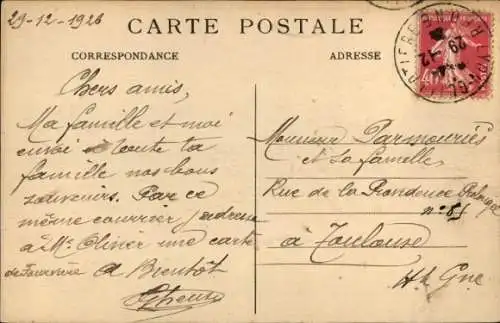 29-12-1926
CARTE POSTALE
CORRESPONDANCE
ADRESSE
29-12
Chers amis,
Ma famille et moi
envoi toute ta
famille nos bons
souvenirs. Par ce
même courrier j'adresse
à Mr Olivier une carte
de Fourvière A Bientôt
Monsieur Parmouriès
et Sa famille
Rue de la Providence
n° 85
à Toulouse
Hte Gne